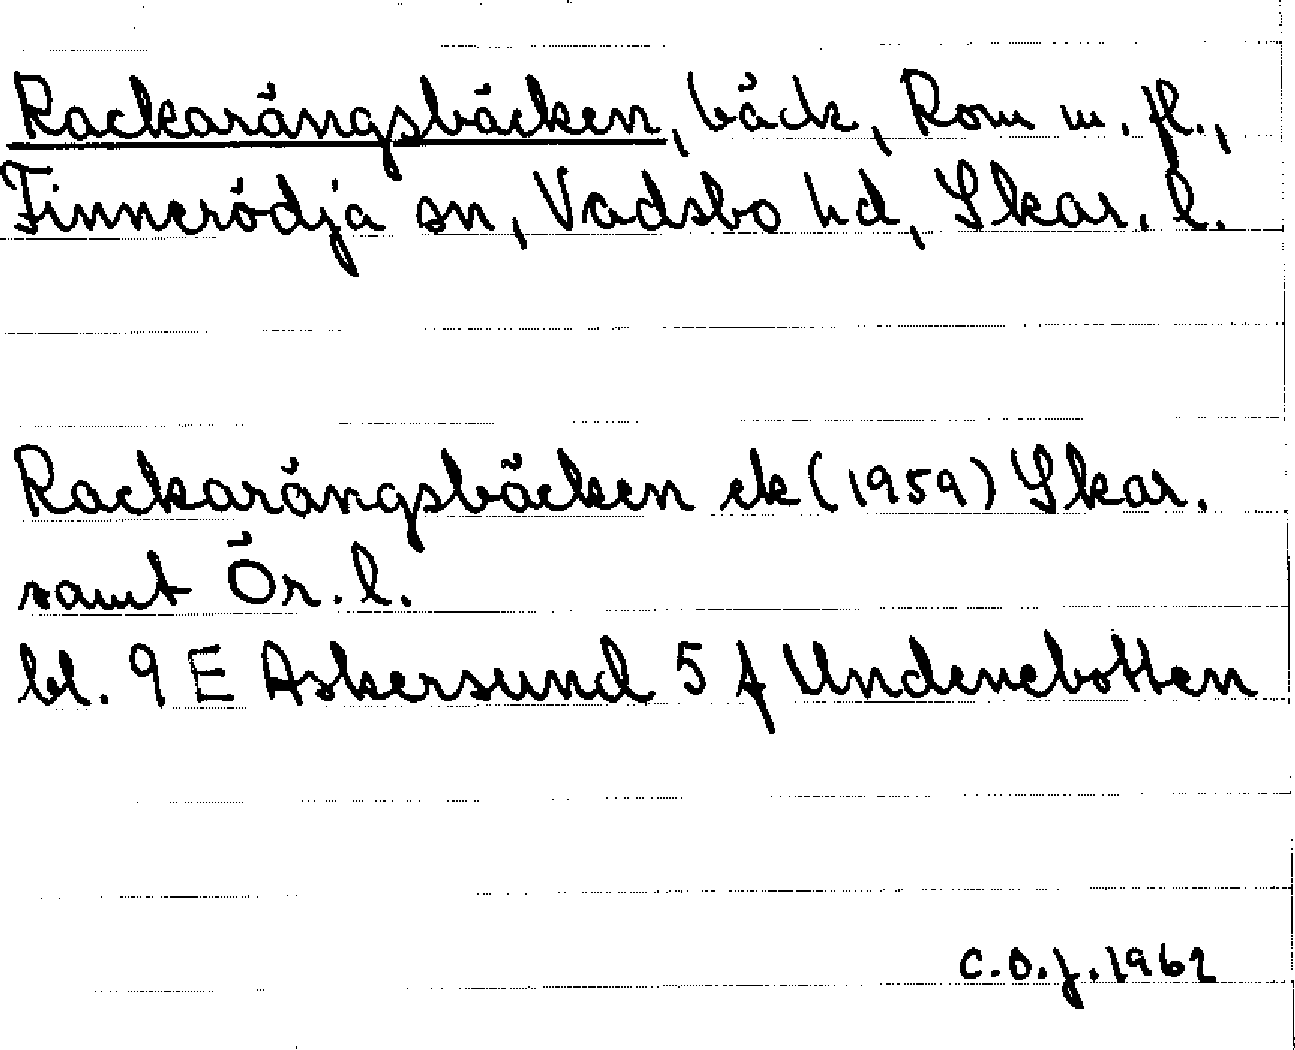 Rackarängsbäcken, bäck, Rom m. fl.,
Finnerödja sn, Vadsbo hd, Skar. l.
Rackarängsbäcken ek (1959) Skar.
samt Ör. l.
bl. 9 E Askersund 5 f Undenebotten
C.O.J. 1962